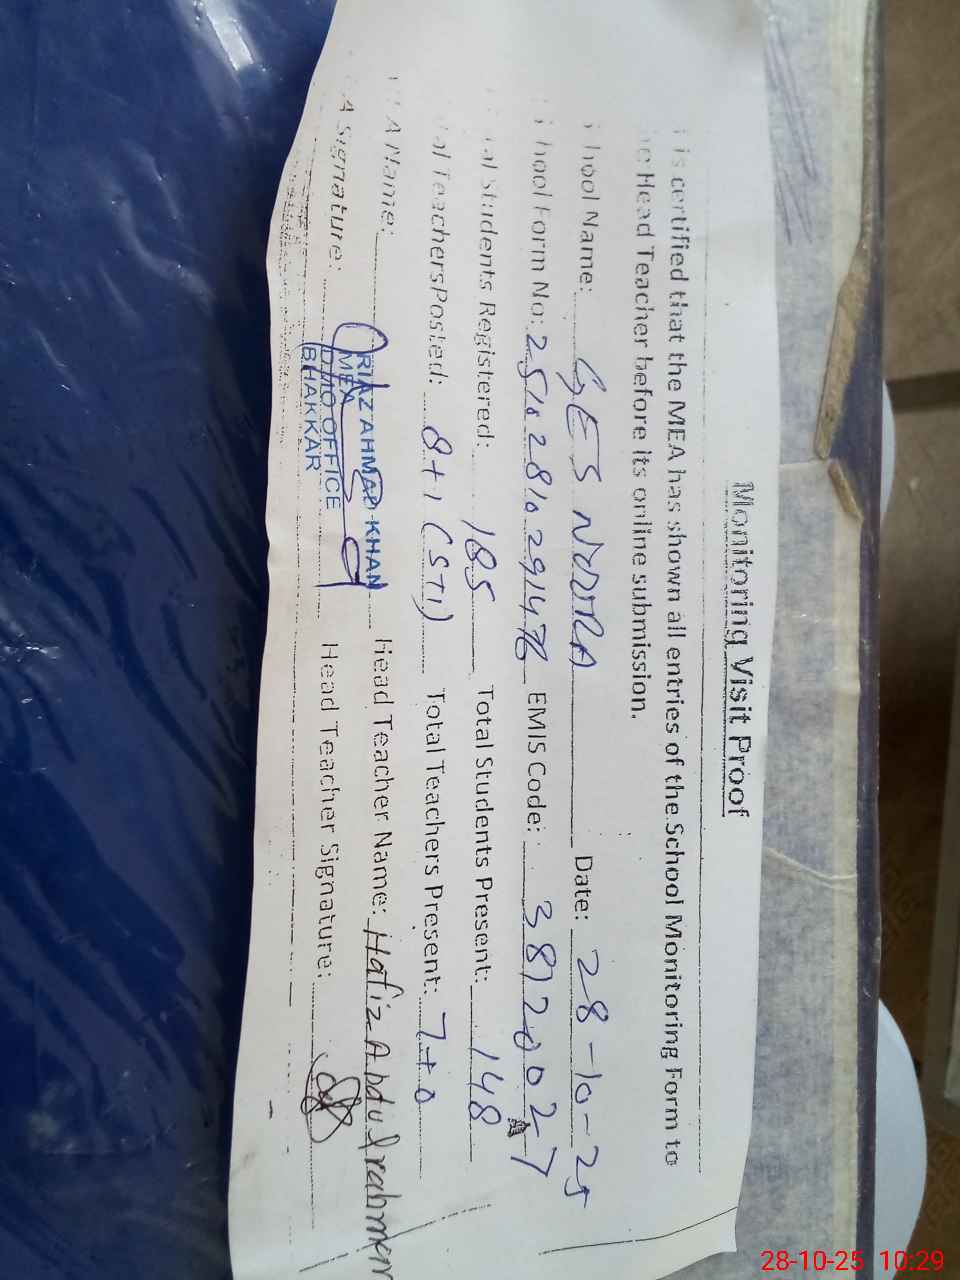 Monitoring Visit Proof
is certified that the MEA has shown all entries of the School Monitoring Form to
Head Teacher before its online submission.
hool Name: GES NOTTRA Date: 28-10-25
hool Form No: EMIS Code: 38120027
al Students Registered: 185 Total Students Present: 148
al Teachers Posted: 8+1 (STI) Total Teachers Present: 7+0
A Name: RIAZ AHMAD KHAN Head Teacher Name: Hafiz Abdulrahman
A Signature: MEA Head Teacher Signature:
DMO OFFICE
BHAKKAR
28-10-25 10:29